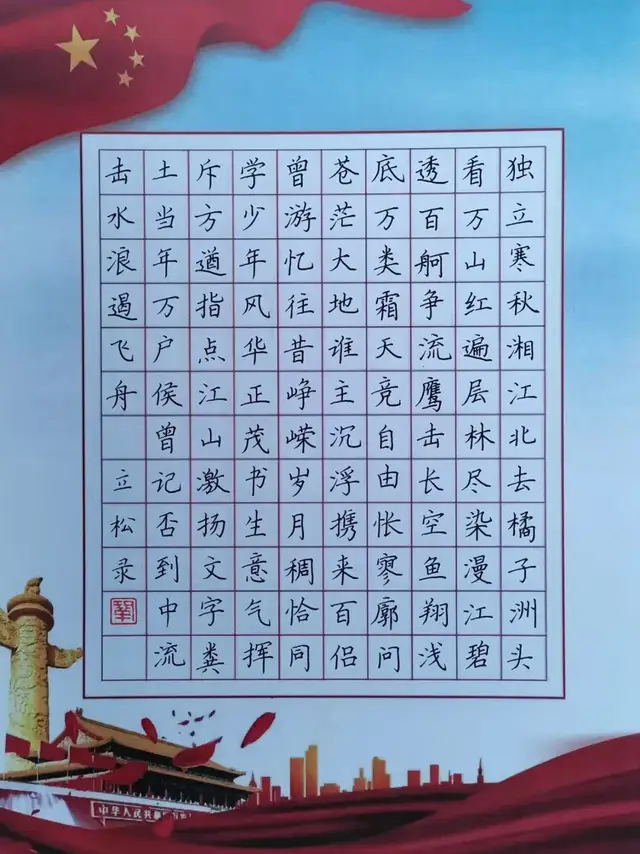 独立寒秋湘江北去橘子洲头
看万山红遍层林尽染漫江碧
透百舸争流鹰击长空鱼翔浅
底万类霜天竞自由怅寥廓问
苍茫大地谁主沉浮携来百侣
曾游忆往昔峥嵘岁月稠恰同
学少年风华正茂书生意气挥
斥方遒指点江山激扬文字粪
土当年万户侯曾记否到中流
击水浪遏飞舟 立松录
中华人民共